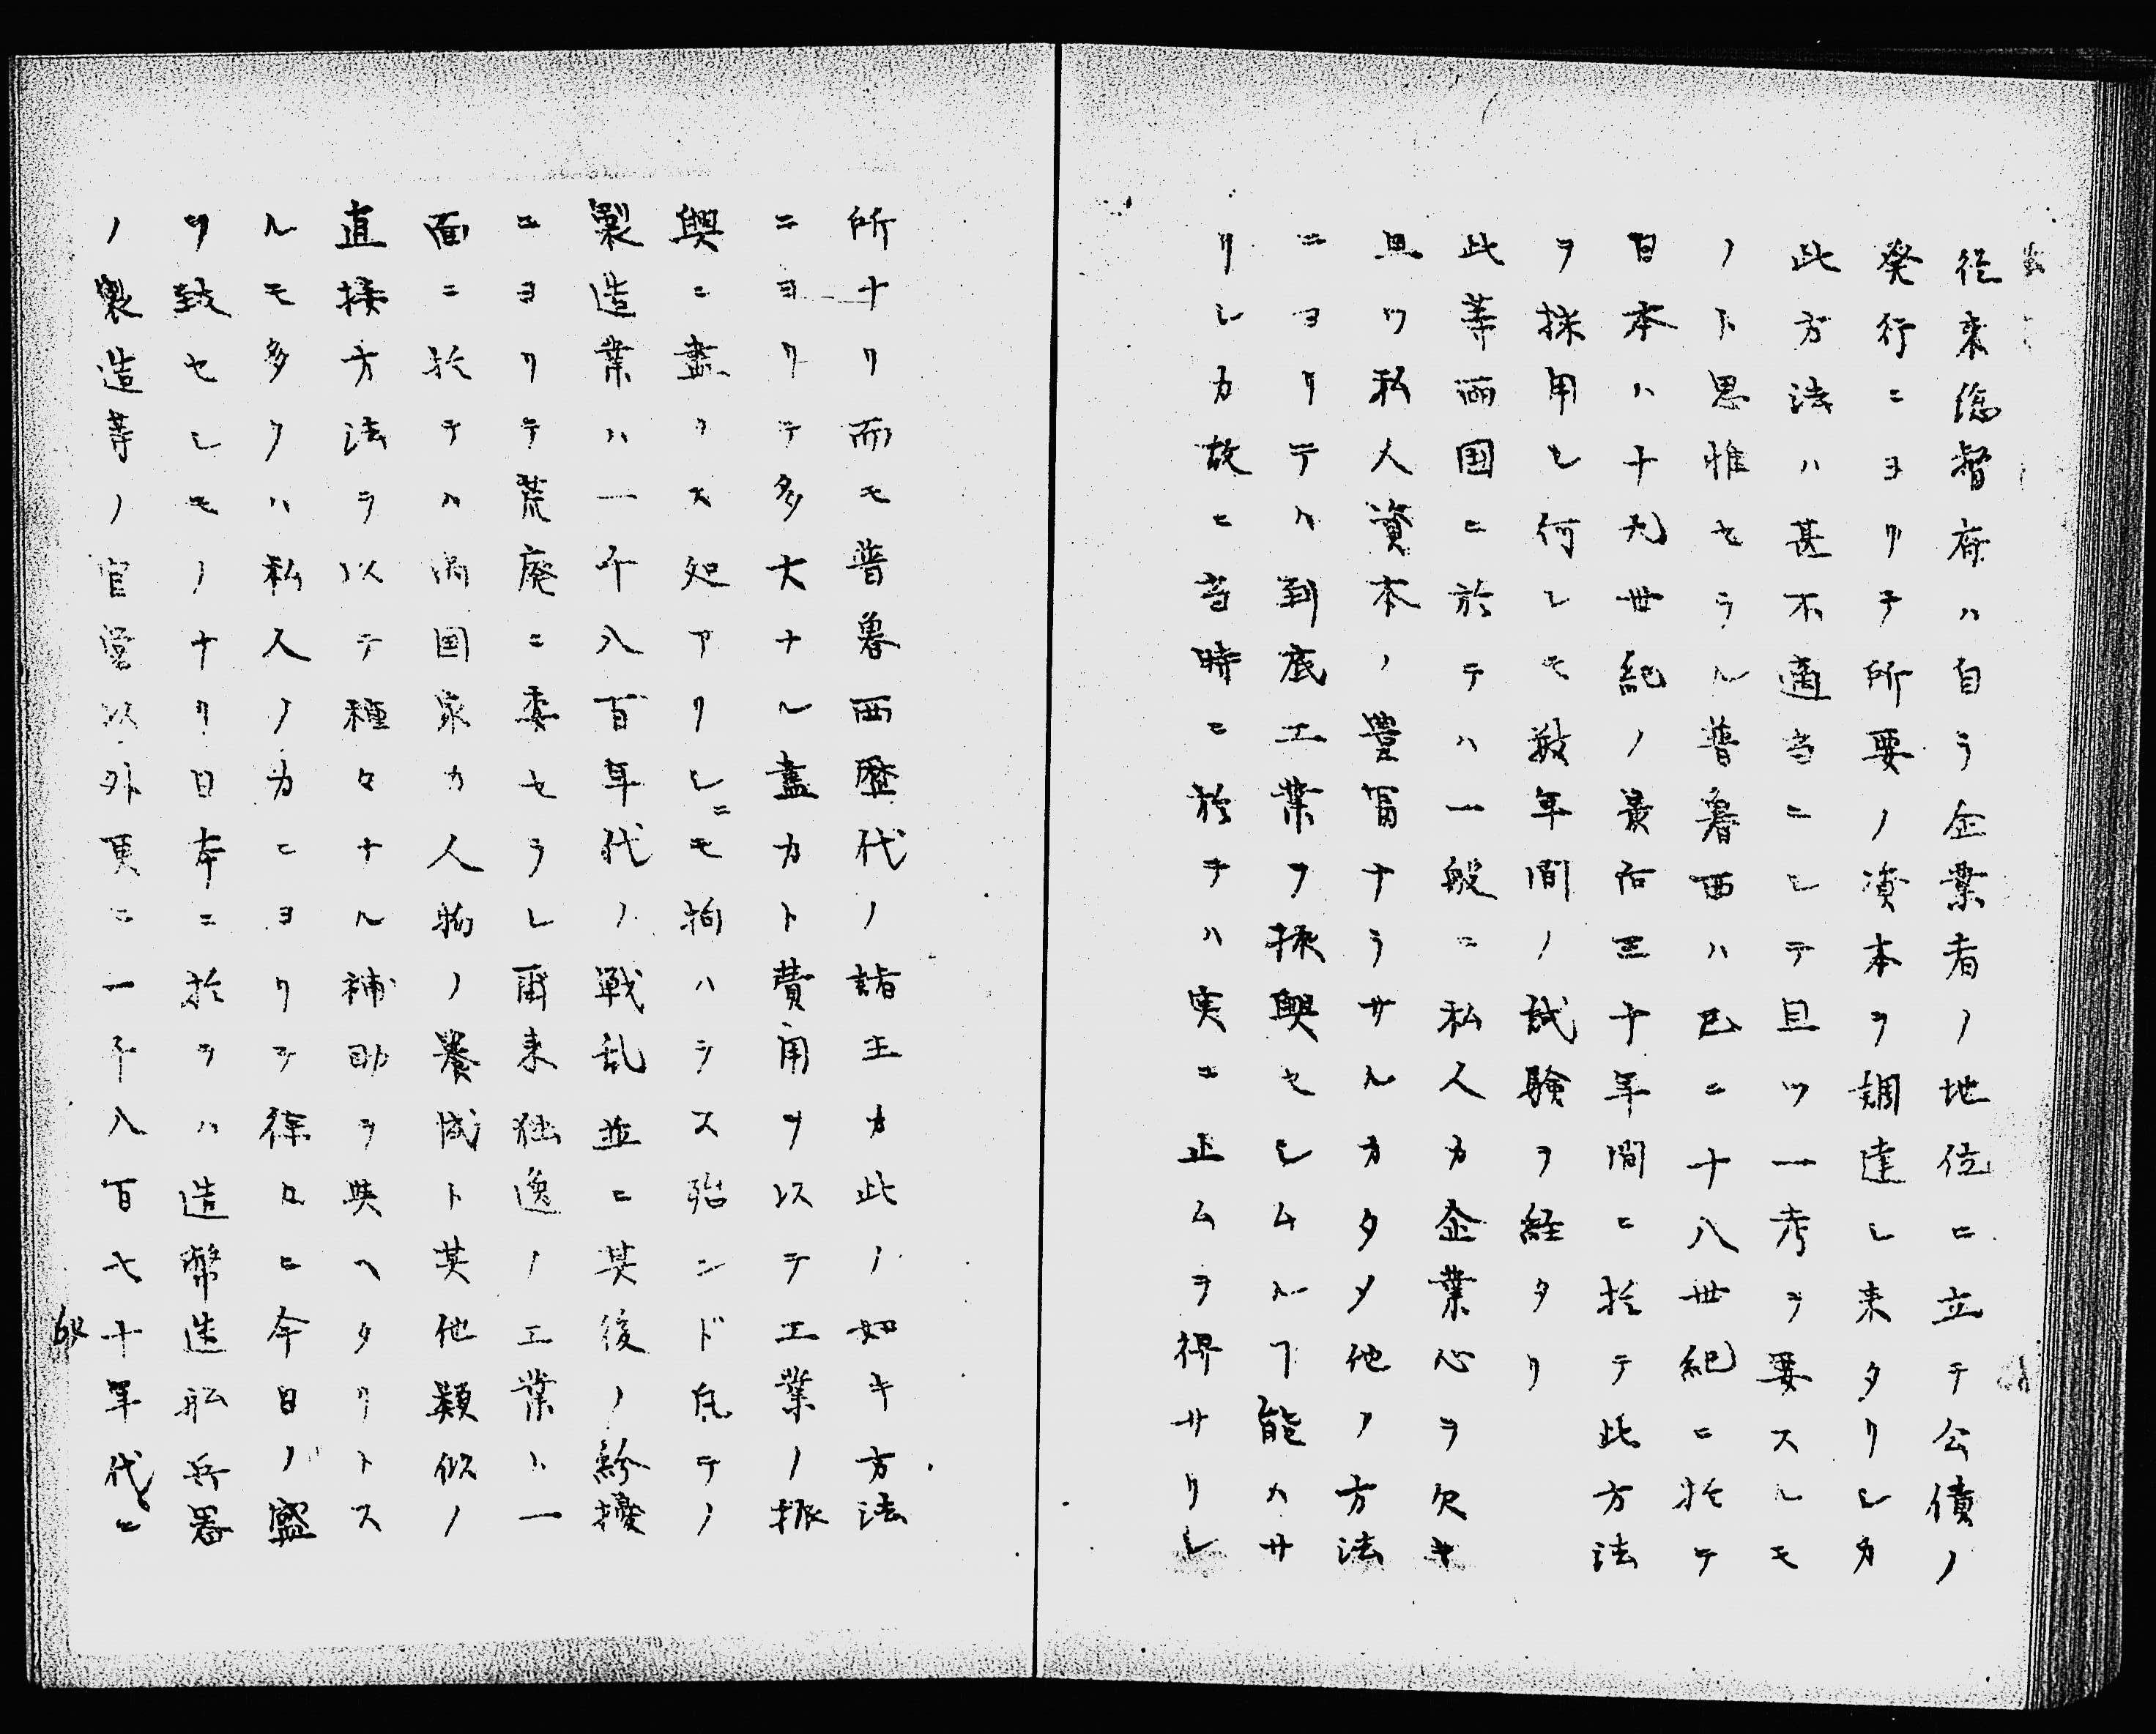 従来総督府ハ自ラ企業者ノ地位ニ立テ公債ノ
発行ニヨリテ所要ノ資本ヲ調達シ来タリシカ
此方法ハ甚不適当ニシテ且ツ一考ヲ要スルモ
ノト思惟セラル普魯西ハ已ニ十八世紀ニ於テ
日本ハ十九世紀ノ最后三十年間ニ於テ此方法
ヲ採用シ何レモ数年間ノ試験ヲ経タリ
此等両国ニ於テハ一般ニ私人カ企業心ヲ欠キ
且ツ私人資本ノ豊富ナラサルカタメ他ノ方法
ニヨリテハ到底工業ヲ振興セシムルヿ能ハサ
リシカ故ニ当時ニ於テハ実ニ止ムヲ得サリシ
所ナリ而モ普魯西歴代ノ諸王カ此ノ如キ方法
ニヨリテ多大ナル尽力ト費用ヲ以テ工業ノ振
興ニ盡クス処アリシニモ拘ハラス殆ンド凡テノ
製造業ハ一千八百年代ノ戦乱並ニ其後ノ紛擾
ニヨリテ荒廃ニ委セラレ爾来独逸ノ工業ハ一
面ニ於テハ尚国家カ人物ノ養成ト其他類似ノ
直接方法ヲ以テ種々ナル補助ヲ與ヘタリトス
ルモ多クハ私人ノ力ニヨリテ徐ロニ今日ノ盛
ヲ致セシモノナリ日本ニ於テハ造幣造船兵器
ノ製造等ノ官営以外更ニ一千八百七十年代ニ